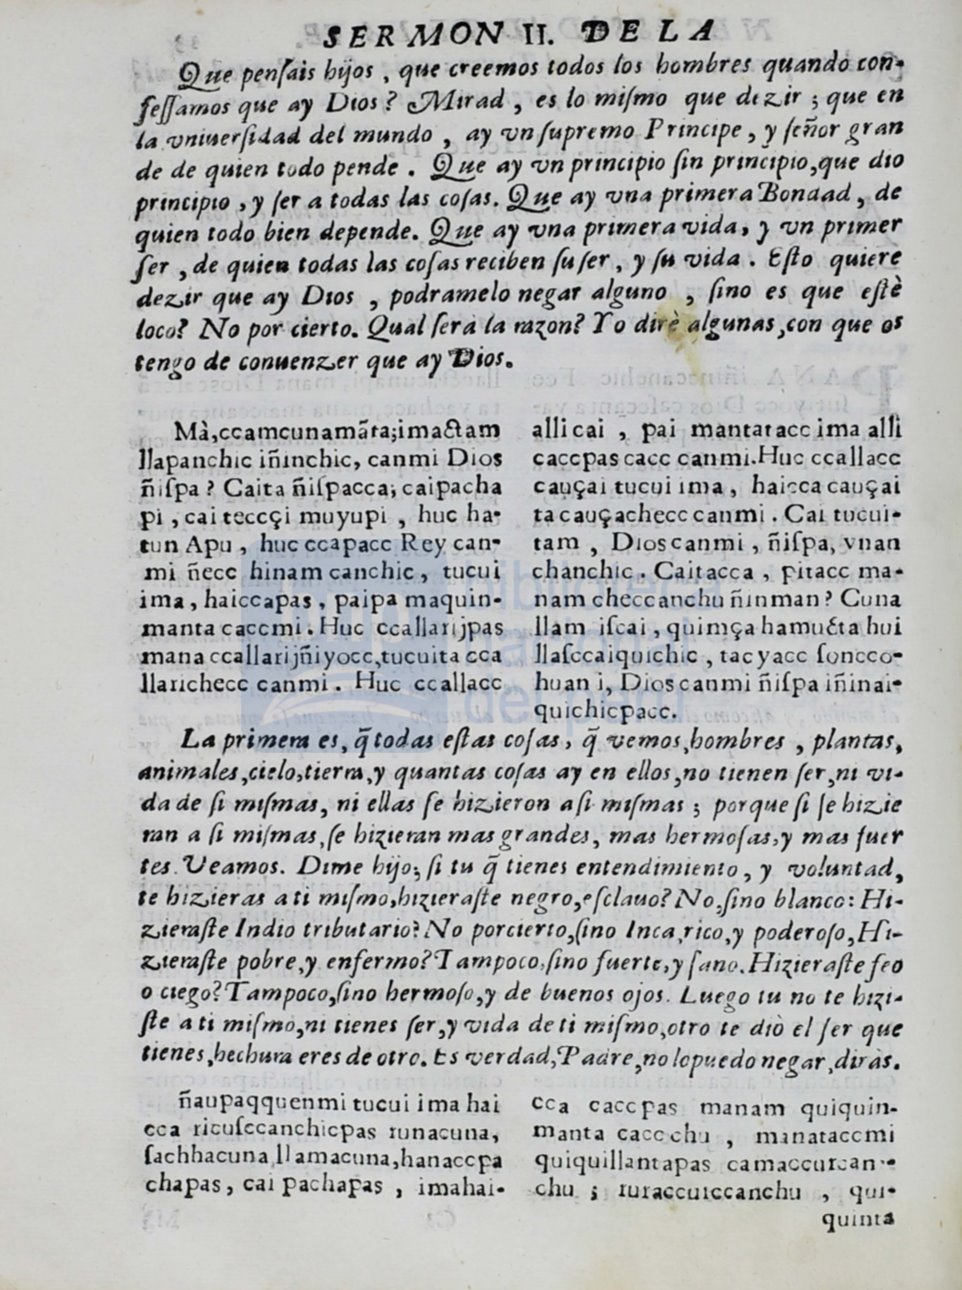 SERMON II. DE LA
Que penſais hijos, que creemos todos los hombres quando con-
feſſamos que ay Dios? Mirad, es lo miſmo que dezir; que en
la vniuerſidad del mundo, ay vn ſupremo Principe, y ſeñor gran
de de quien todo pende. Que ay vn principio ſin principio, que dio
principio, y ſer a todas las coſas. Que ay vna primera Bondad, de
quien todo bien depende. Que ay vna primera vida, y vn primer
ſer, de quien todas las coſas reciben ſu ſer, y ſu vida. Eſto quiere
dezir que ay Dios, podramelo negar alguno, ſino es que eſtè
loco? No por cierto. Qual ſera la razon? Yo dirè algunas, con que os
tengo de conuenzer que ay Dios.
Mà, ccamcunamãta; imactam
llapanchic iñinchic, canmi Dios
ñiſpa? Caita ñiſpacca; caipacha
pi, cai teccçi muyupi, huc ha-
tun Apu, huc ccapacc Rey can-
mi ñecc hinam canchic, tucui
ima, haiccapas, paipa maquin-
manta caccmi. Huc ccallarijpas
mana ccallarijñiyocc, tucuita cca
llarichecc canmi. Huc ccallacc
alli cai, pai mantatacc ima alli
caccpas cacc canmi. Huc ccallacc
cauçai tucui ima, haicca cauçai
ta cauçachecc canmi. Cai tucui-
tam, Dios canmi, ñiſpa, vnan
chanchic. Caitacca, pitacc ma-
nam checcanchu ñinman? Cuna
llam iſcai, quimça hamucta hui
llaſccaiquichic, tacyacc ſoncco-
huan i, Dios canmi ñiſpa iñinai-
quichicpacc.
La primera es, q̃ todas eſtas coſas, q̃ vemos, hombres, plantas,
animales, cielo, tierra, y quantas coſas ay en ellos, no tienen ſer, ni vi-
da de ſi miſmas, ni ellas ſe hizieron a ſi miſmas; porque ſi ſe hizie
ran a ſi miſmas, ſe hizieran mas grandes, mas hermoſas, y mas fuer
tes. Veamos. Dime hijo; ſi tu q̃ tienes entendimiento, y voluntad,
te hizieras a ti miſmo, hizieraſte negro, eſclauo? No, ſino blanco: Hi-
zieraſte Indio tributario? No porcierto, ſino Inca, rico, y poderoſo, Hi-
zieraſte pobre, y enfermo? Tampoco, ſino fuerte, y ſano. Hizieraſte feo
o ciego? Tampoco, ſino hermoſo, y de buenos ojos. Luego tu no te hizi-
ſte a ti miſmo, ni tienes ſer, y vida de ti miſmo, otro te diò el ſer que
tienes, hechura eres de otro. Es verdad, Padre, no lo puedo negar, diras.
ñaupaqquenmi tucui ima hai
cca ricuſccanchicpas runacuna,
ſachhacuna llamacuna, hanaccpa
chapas, cai pachapas, imahai-
cca caccpas manam quiquin-
manta caccchu, manataccmi
quiquillantapas camaccurcan-
chu; ruraccurccanchu, qui-
quinta